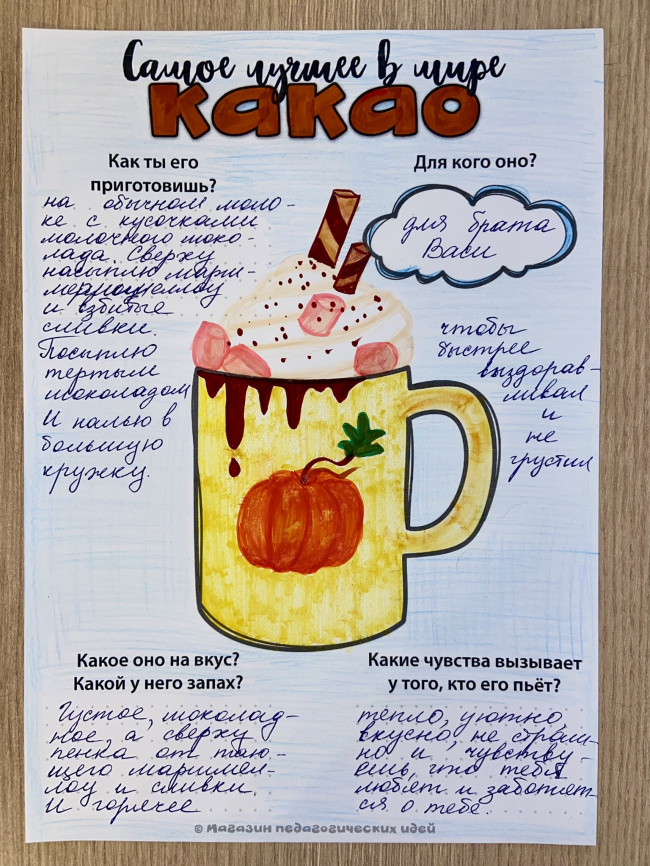 Самое лучшее в мире
какао
Как ты его
приготовишь?
на обычном моло-
ке с кусочками
молочного шоко-
лада. Сверху
насыплю марш-
меллоу
и взбитые
сливки.
Посыплю
тертым
шоколадом
И налью в
большую
кружку.
Для кого оно?
для брата
Васи
чтобы
быстрее
выздорав-
ливал
и
не
грустил
Какое оно на вкус?
Какой у него запах?
Густое, шоколад-
ное, а сверху
пенка от таю-
щего маршмел-
лоу и сливки.
И горячее
Какие чувства вызывает
у того, кто его пьёт?
тепло, уютно,
вкусно, не страш-
но и чувству-
ешь, что тебя
любят и заботят-
ся о тебе.
© Магазин педагогических идей